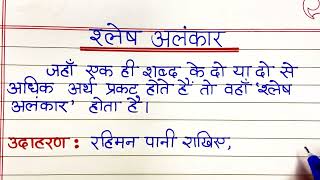 श्लेष अलंकार
जहाँ एक ही शब्द के दो या दो से
अधिक अर्थ प्रकट होते हैं तो वहाँ 'श्लेष
अलंकार' होता है।
उदाहरण : रहिमन पानी राखिए,